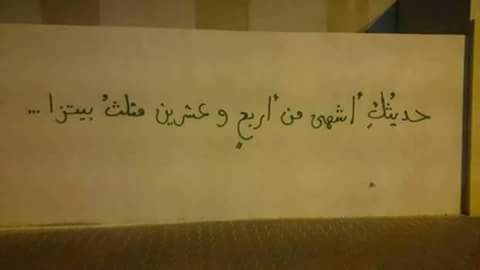 حديثُكِ أشهى من أربعٍ و عشرين مثلثُ بيتزا ...